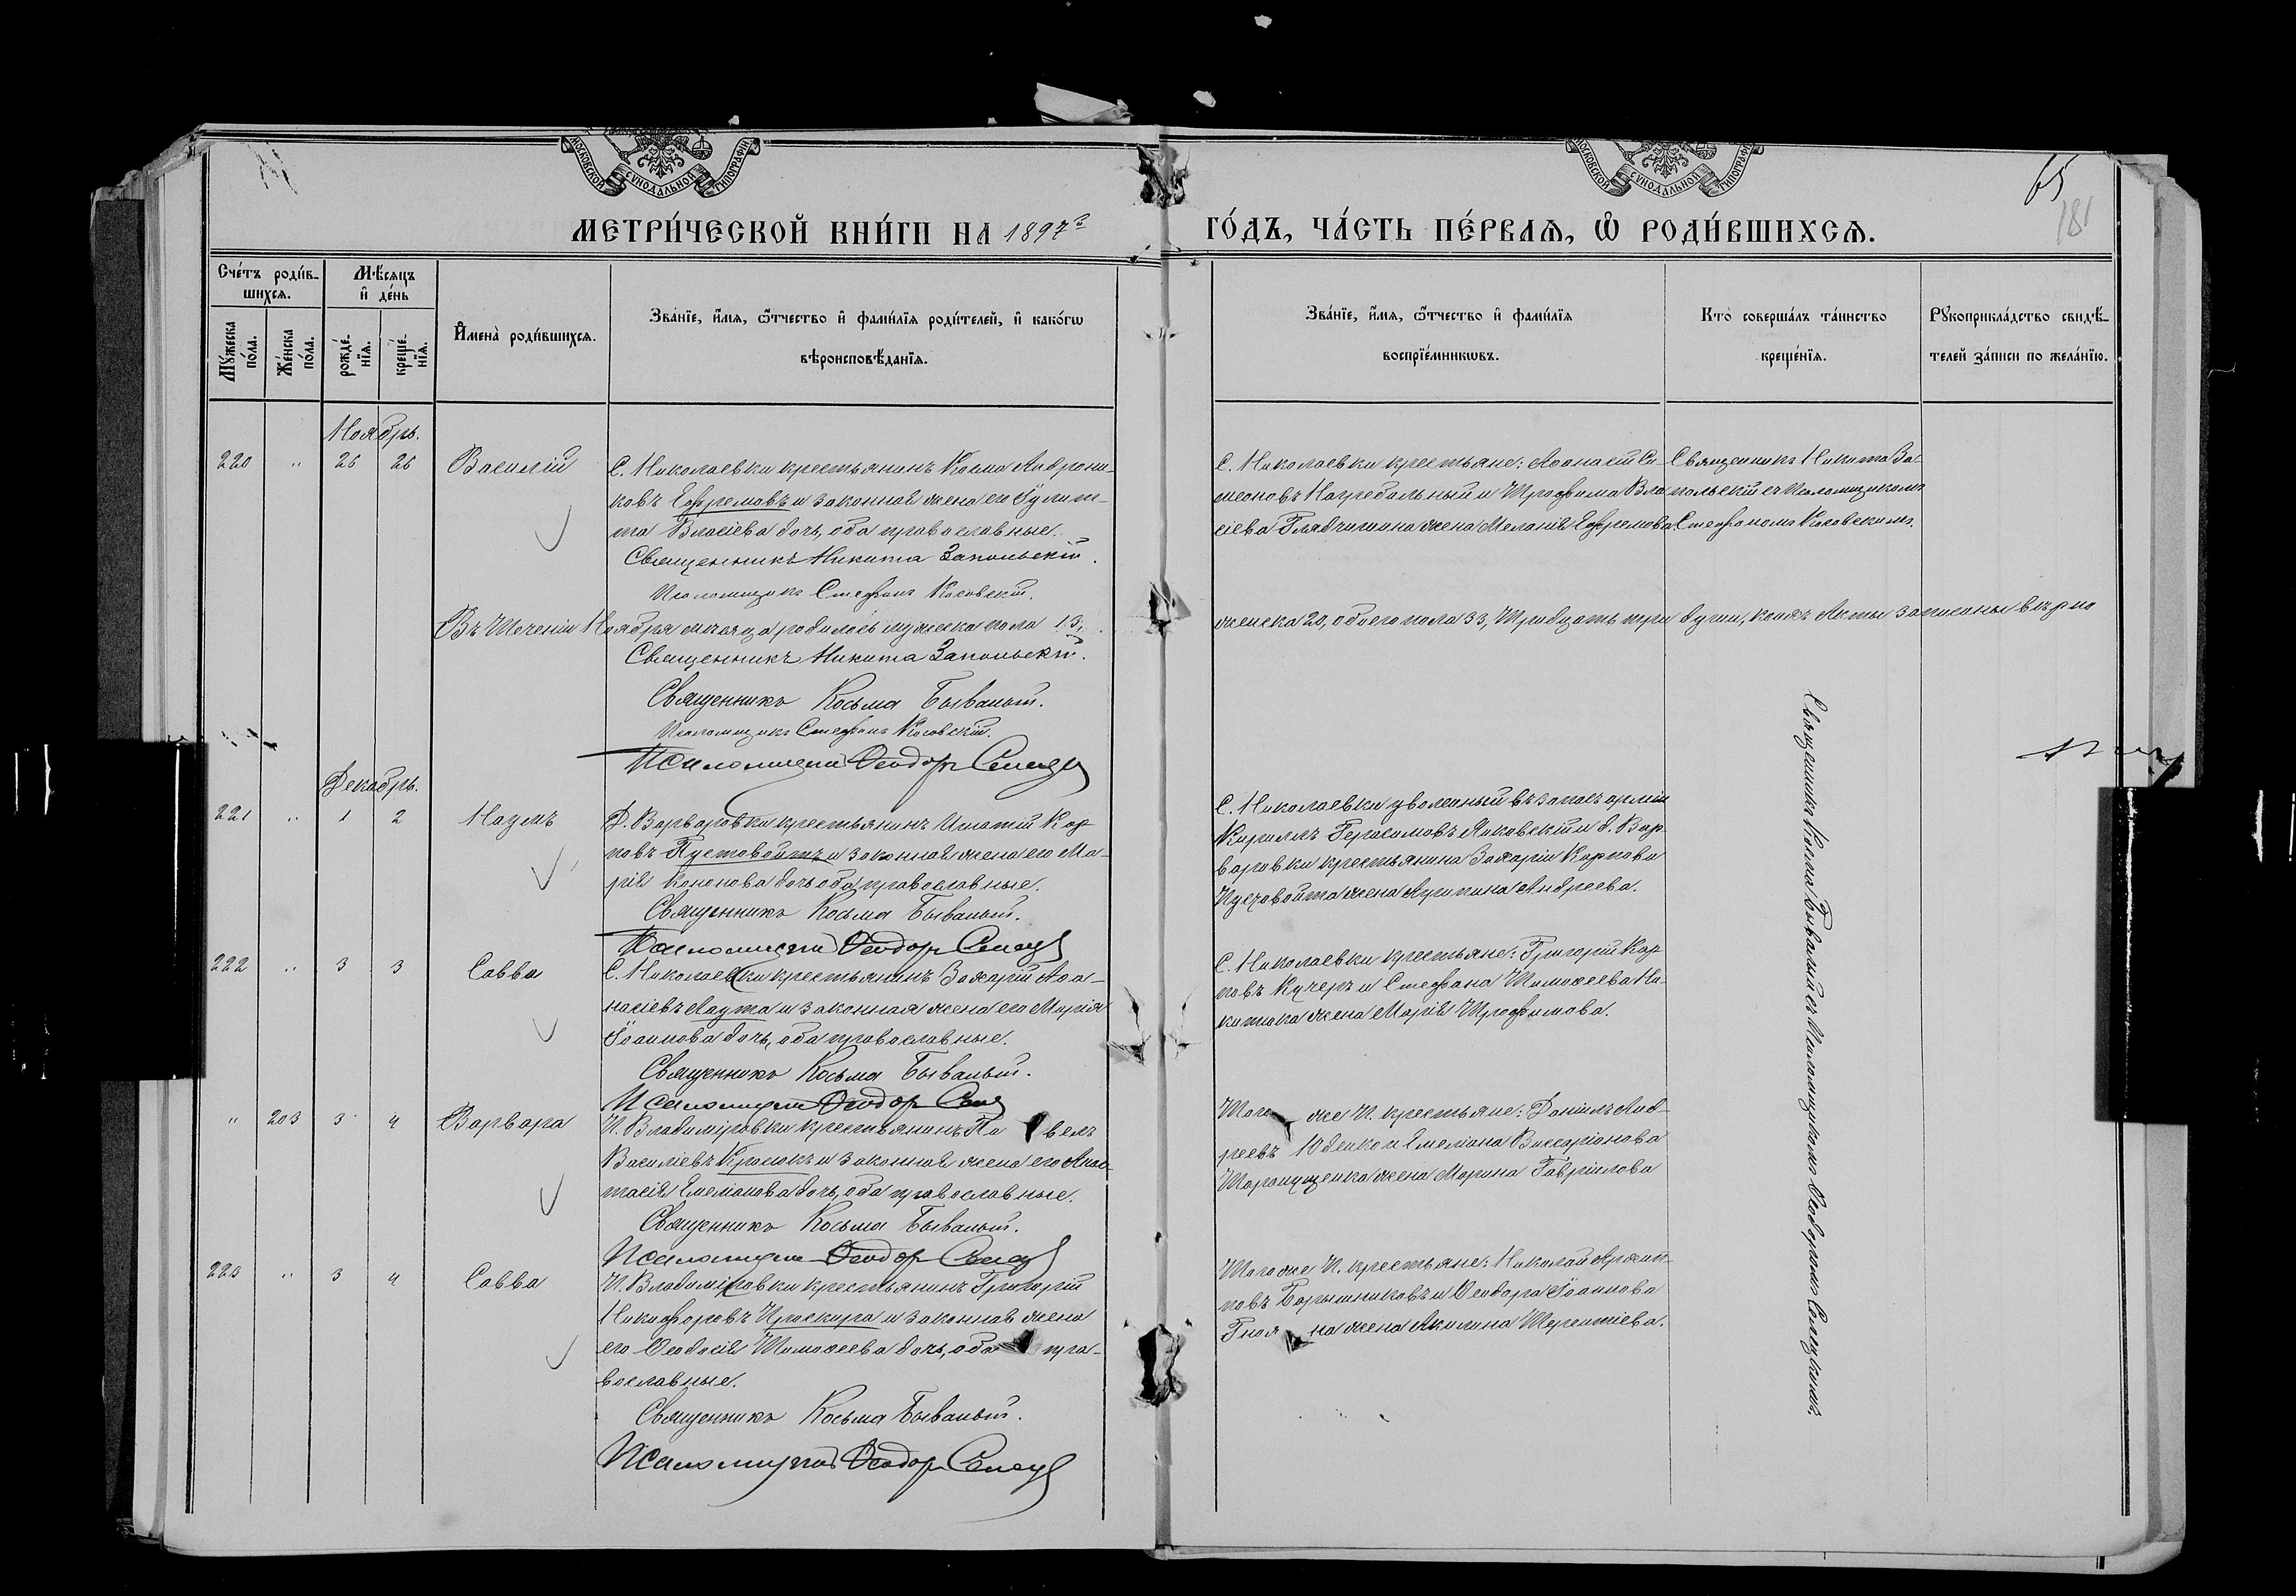 МОСКОВСКОЙ СУНОДАЛЬНОЙ ТИПОГРАФІИ
МОСКОВСКОЙ СУНОДАЛЬНОЙ ТИПОГРАФІИ
65
181
МЕТРИ́ЧЕСКОЙ КНИ́ГИ НА 1897й ГО́ДЪ, ЧА́СТЬ ПЕ́РВАѦ, Ѡ РОДИ́ВШИХСѦ.
Сче́тъ роди́в-
шихсѧ.
Му́жеска по́ла.
Же́нска по́ла.
Мѣ́сѧцъ
и҆ де́нь
рожде́-
нїѧ.
креще́-
нїѧ.
И҆мена̀ роди́вшихсѧ.
Зва́нїе, и҆́мѧ, ѻ҆́тчество и҆ фами́лїѧ роди́телей, и҆ како́гѡ
вѣроисповѣ́данїѧ.
Зва́нїе, и҆́мѧ, ѻ҆́тчество и҆ фами́лїѧ
воспрїе́мникѡвъ.
Кто̀ соверша́лъ та́инство
креще́нїѧ.
Рꙋкоприкла́дство свидѣ́-
телей за́писи по жела́нїю.
Ноябрь.
220 " 26 26 Василій
С. Николаевки крестьянинъ Косма Андрони-
ковъ Ефремовъ и законная жена его Іулит-
та Власіева дочь, оба православные.
Священникъ Никита Запольскій.
Псаломщикъ Стефанъ Косовскій.
С. Николаевки крестьяне: Аѳанасій Си-
меоновъ Нагребельный и Трофима Вла-
сіева Глядчишина жена Меланія Ефремова.
Священникъ Никита За-
польскій съ Псаломщикомъ
Стефаномъ Косовскимъ.
Въ теченіи Ноября мѣсяца родилось мужеска пола 13,
женска 20, обоего пола 33, Тридцать три души, коихъ Акты записаны вѣрно
Священникъ Никита Запольскій.
Священникъ Косьма Бывалый.
Псаломщикъ Стефанъ Косовскій.
Псаломщикъ Ѳеодоръ
Декабрь.
221 " 1 2 Наумъ
Д. Варваровки крестьянинъ Игнатій Кар-
повъ Пустовойтъ и законная жена его Ма-
рія Кононова дочь оба православные.
Священникъ Косьма Бывалый.
Псаломщикъ Ѳеодоръ
С. Николаевки уволенный въ запасъ арміи
Кириллъ Герасимовъ Яковскій и д. Вар-
варовки крестьянина Захарія Карпова
Пустовойта жена Агрипина Андреева.
222 " 3 3 Савва
С. Николаевки крестьянинъ Захарій Аѳа-
насіевъ Лаута и законная жена его Марія
Іоаннова дочь, оба православные.
Священникъ Косьма Бывалый.
Псаломщикъ Ѳеодоръ
С. Николаевки крестьяне: Григорій Кар-
повъ Кучеръ и Стефана Тимоѳеева Ни-
китюка жена Марія Трофимова.
" 203 3 4 Варвара
П. Владиміровки крестьянинъ Павелъ
Василіевъ Красокъ и законная жена его Анас-
тасія Емеліанова дочь, оба православные.
Священникъ Косьма Бывалый.
Псаломщикъ Ѳеодоръ
Того же П. крестьяне: Даніилъ Анд-
реевъ Юденко и Емеліана Виссаріонова
жена Марина Гавріилова
223 " 3 4 Савва
П. Владиміровки крестьянинъ Григорій
Никифоровъ Проскура и законная жена
его Ѳеодосія Тимоѳеева дочь, оба пра-
вославные.
Священникъ Косьма Бывалый.
Псаломщикъ Ѳеодоръ
Того же П. крестьяне: Николай Архип-
повъ Барышниковъ и Ѳеодора Іоаннова
жена Акилина Терентіева.
Священникъ Косма Бывалый съ Псаломщикомъ Ѳеодоромъ Селецкимъ.